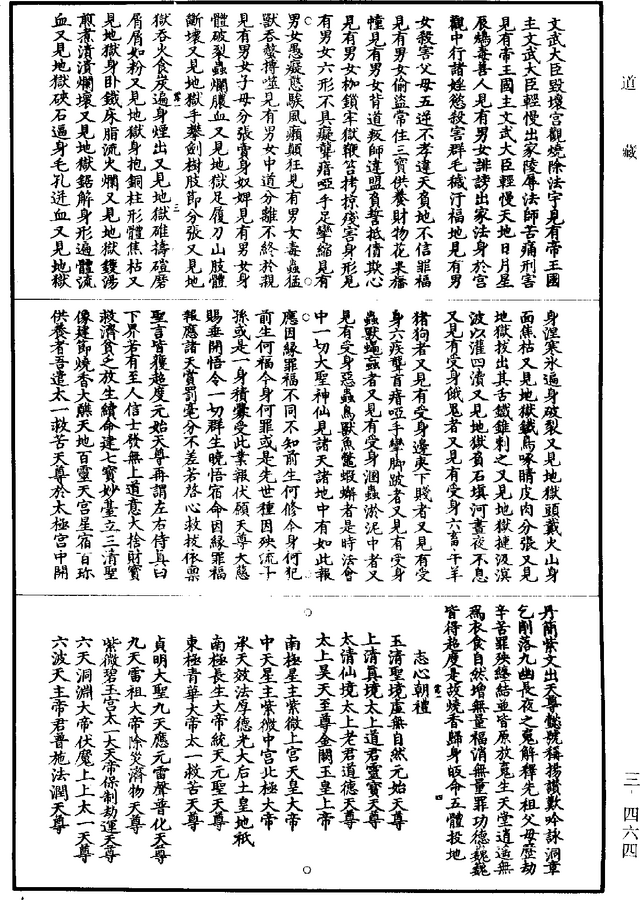 道藏
文武大臣毀壞宮觀燒除法宇見有帝王國
主文武大臣輕慢出家陵辱法師苦痛刑害
見有帝王國主文武大臣輕慢天地日月星
辰鴆毒善人見有男女誹謗出家法身於宮
觀中行諸婬慾殺害群毛穢汙福地見有男
女殺害父母五逆不孝違天負地不信罪福
見有男女偷盜常住三寶供養財物花果旛
幢見有男女背道叛師違盟負誓抵債欺心
見有男女枷鎖牢獄鞭笞拷掠殘害身形見
有男女六形不具癡聾瘖啞手足攣縮見有
男女愚癡憨騃風癩顛狂見有男女毒蟲猛
獸吞螫摶噬見有男女中道分離不終於親
見有男女子母分張賣身奴婢見有男女身
體破裂蟲爛膿血又見地獄足履刀山肢體
斷壞又見地獄手攀劍樹肢節分張又見地
獄吞火食炭遍身煙出又見地獄碓擣磑磨
屑屑如粉又見地獄身抱銅柱形體焦枯又
見地獄身卧鐵床脂流火爛又見地獄鑊湯
煎煮潰潰爛壞又見地獄鋸解身形遍體流
血又見地獄硤石逼身毛孔迸血又見地獄
身涅寒氷遍身破裂又見地獄頭戴火山身
面焦枯又見地獄鐵鳥啄睛皮肉分張又見
地獄拔出其舌鐵錐刺之又見地獄摙汲溟
波以灌四瀆又見地獄負石填河晝夜不息
又見有受身餓鬼者又見有受身六畜牛羊
猪狗者又見有受身邊夷下賤者又見有受
身六疾聾盲瘖啞手攣脚跛者又見有受身
蟲獸蠅蟲者又見有受身溷蟲淤泥中者又
見有受身惡蟲鳥獸魚鱉蝦蠏者是時法會
中一切大聖神仙見諸天諸地中有如此報
應因緣罪福不同不知前生何修今身何犯
前生何福今身何罪或是先世種因殃流子
孫或是一身積釁受此業報伏願天尊大慈
賜垂開悟令一切群生曉悟宿命因緣罪福
報應諸天賞罰毫分不差若啓心救拔依稟
聖言皆獲超度元始天尊再謂左右侍真曰
下界若有至人信士發無上道意大捨財寶
救濟貧乏放生續命建七寶妙臺立三清聖
像建節燒香大醮天地百靈天宮星宿百珎
供養者吾遣太一救苦天尊於太極宮中開
丹簡紫文出天尊懿號稱揚讚歎吟詠洞章
乞削落九幽長夜之寃解釋先祖父母歷劫
辛苦罪殃纏結並皆原放寃生天堂逍遥無
爲衣食自然增無量福消無量罪功德巍巍
皆得超度是故燒香歸身皈命五體投地
志心朝禮
玉清聖境虛無自然元始天尊
上清真境太上道君靈寶天尊
太清仙境太上老君道德天尊
太上昊天至尊金闕玉皇上帝
南極星主紫微上宮天皇大帝
中天星主紫微中宮北極大帝
承天效法厚德光大后土皇地祇
南極長生大帝統天元聖天尊
東極青華大帝太一救苦天尊
貞明大聖九天應元雷聲普化天尊
九天雷祖大帝除災濟物天尊
紫微碧玉宮太一大天帝保制劫運天尊
六天洞淵大帝伏魔上上太一天尊
六波天主帝君普施法潤天尊
三-四六四